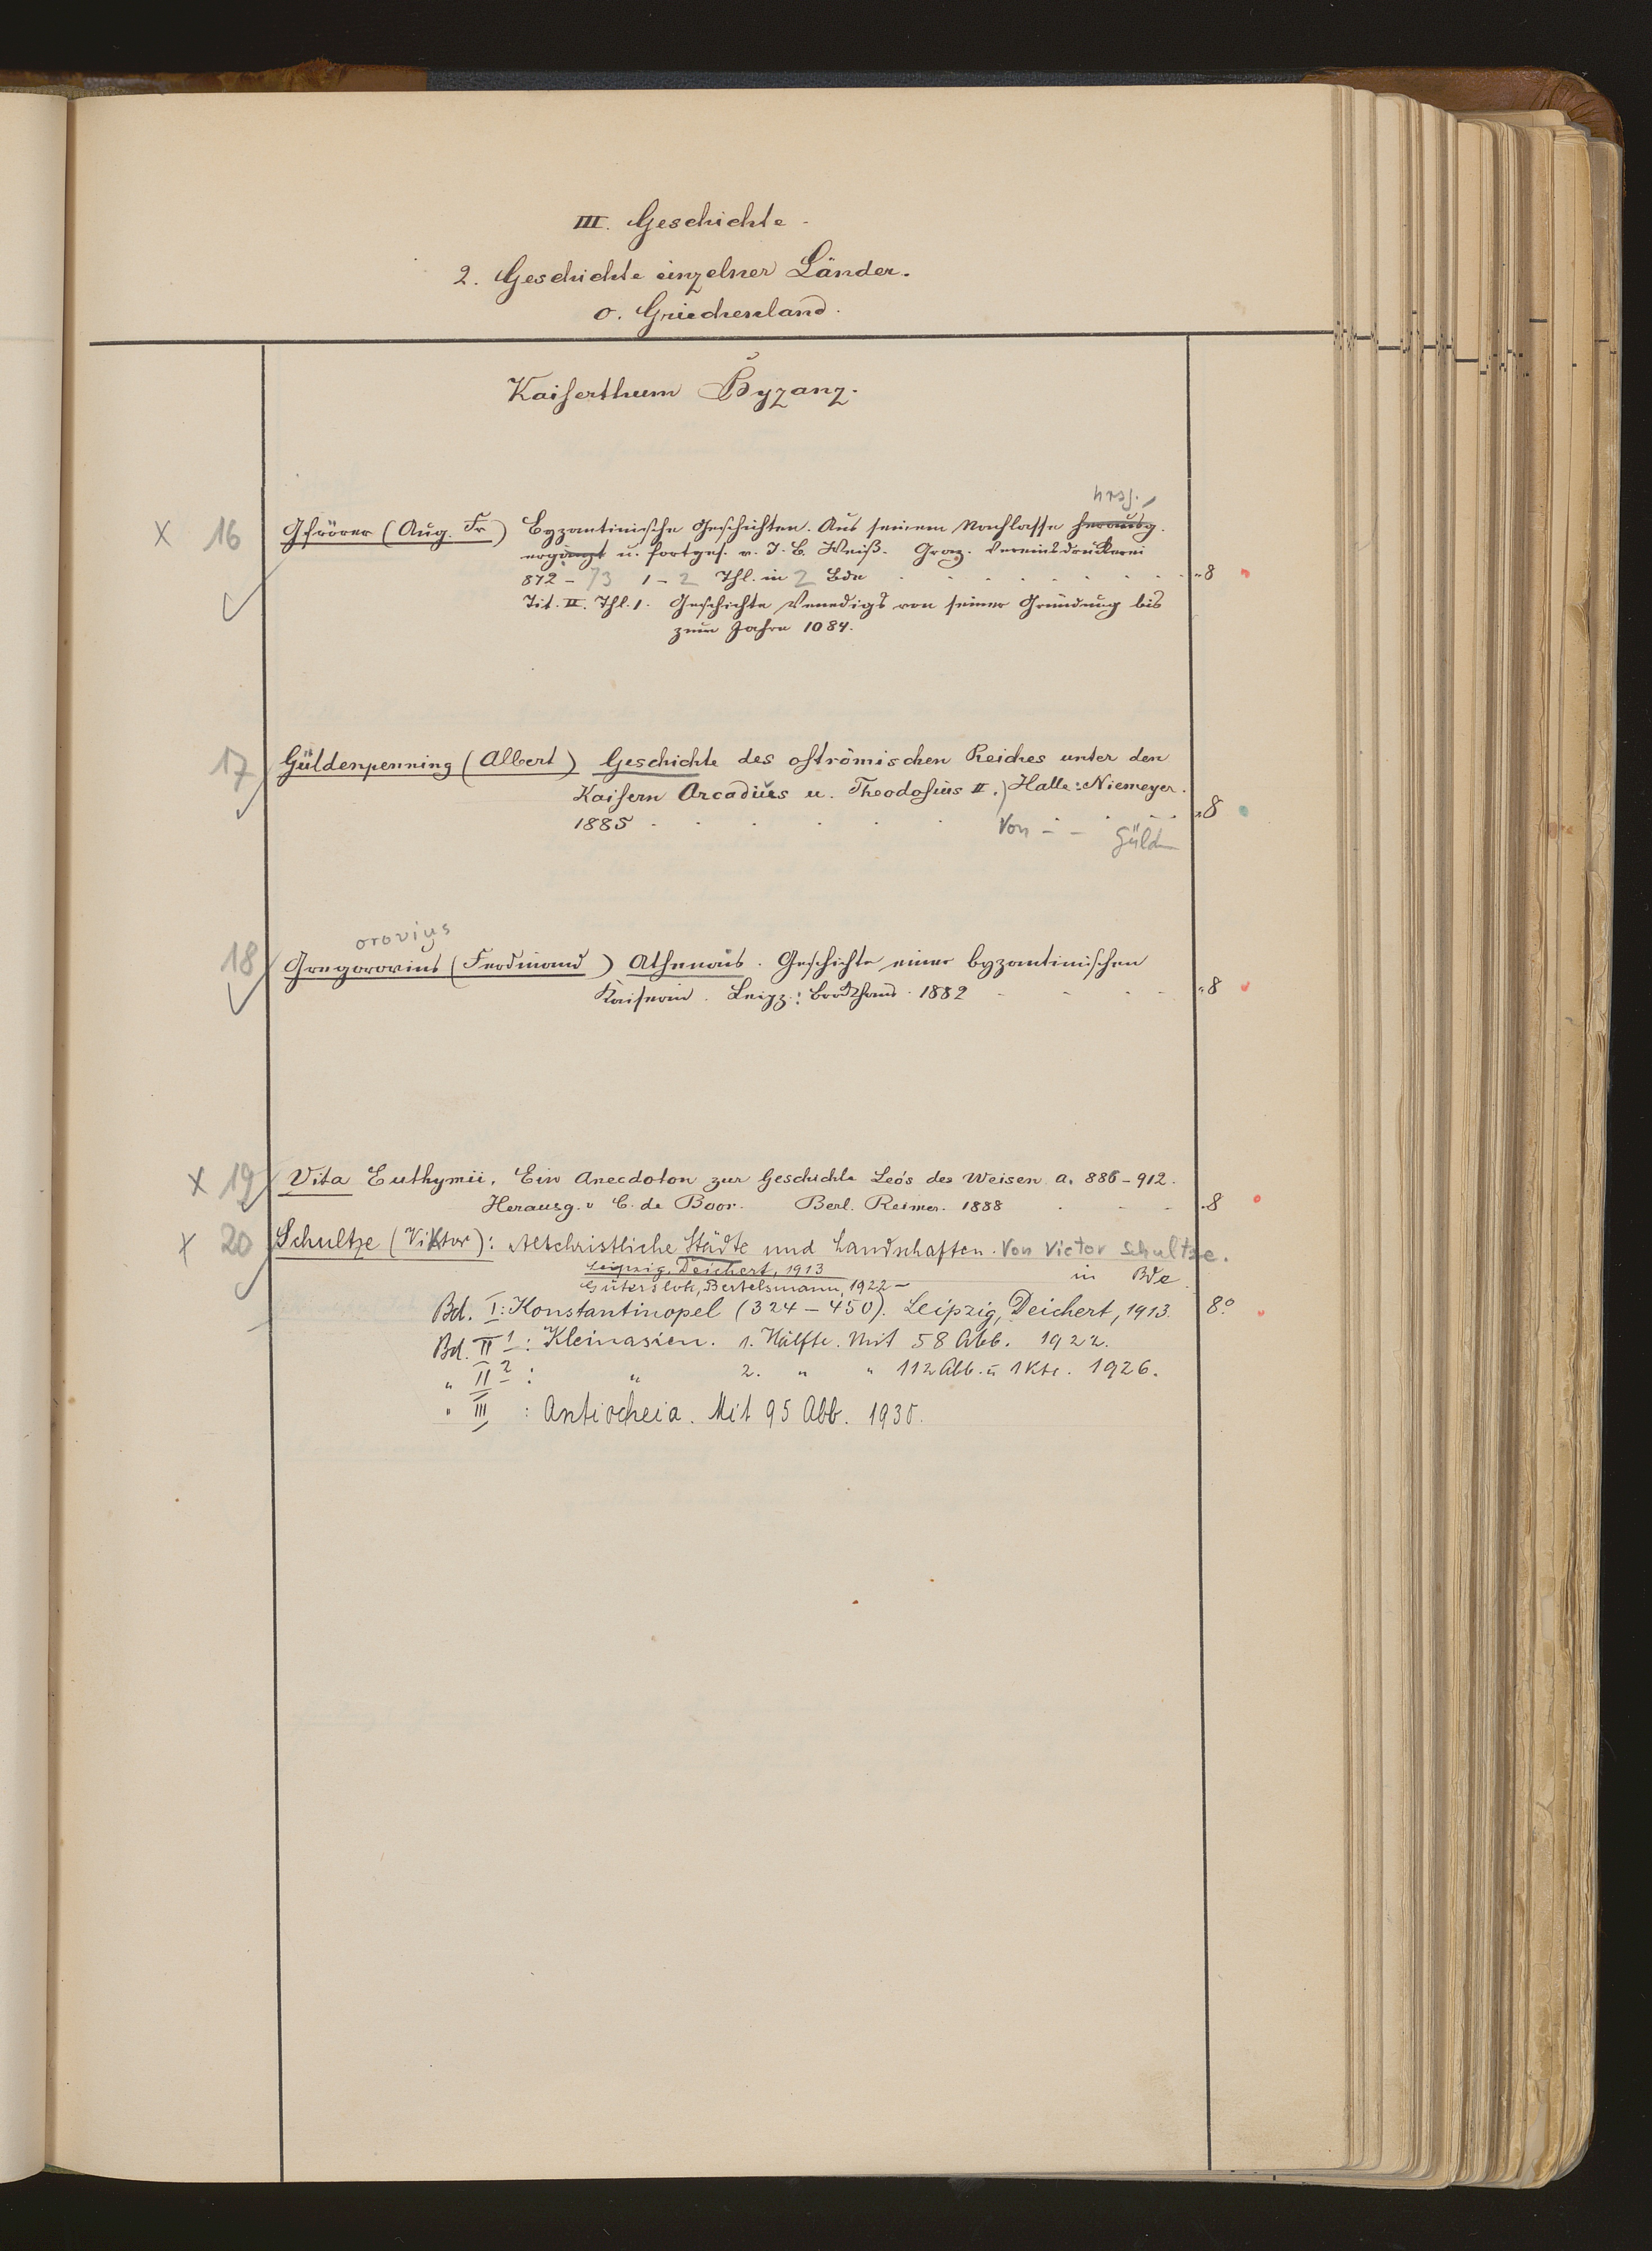 III. Geschichte.
2. Geschichte einzelner Länder.
o. Griechenland.
Kaiserthum Byzanz.
hrsg.
X 16 Gfrörer (Aug. Fr) Byzantinische Geschichten. Aus seinem Nachlasse herausg.
ergänzt u. fortges. v. J. B. Weiß. Graz. Vereinsdruckerei
872 - 73 1 - 2 Thl. in 2 Bde . . . . . . . . "8
Tit. II. Thl. 1. Geschichte Venedigs von seiner Gründung bis
zum Jahre 1084.
17 Güldenpenning (Albert) Geschichte des oströmischen Reiches unter den
Kaisern Arcadius u. Theodosius II.) Halle: Niemeyer.
1885 . . . . . . . . "8
Von - - Güld
orovius
18 Gregorovius (Ferdinand) Athenais. Geschichte einer byzantinischen
Kaiserin. Leipz.: Brockhaus. 1882 . . . . "8
X 19 Vita Euthymii. Ein Anecdoton zur Geschichte Leo's des Weisen a. 886-912.
Herausg. v C. de Boor. Berl. Reimer. 1888 . . . "8
X 20 Schultze (Viktor): Altchristliche Städte und Landschaften. Von Victor Schultze.
Leipzig, Deichert, 1913
in Bde
Gütersloh, Bertelsmann, 1922-
Bd. I: Konstantinopel (324-450). Leipzig, Deichert, 1913. 8°
Bd. II 1: Kleinasien. 1. Hälfte. Mit 58 Abb. 1922.
" II 2: " 2. " " 112 Abb. u 1 Kte. 1926.
" III : Antiocheia. Mit 95 Abb. 1930.